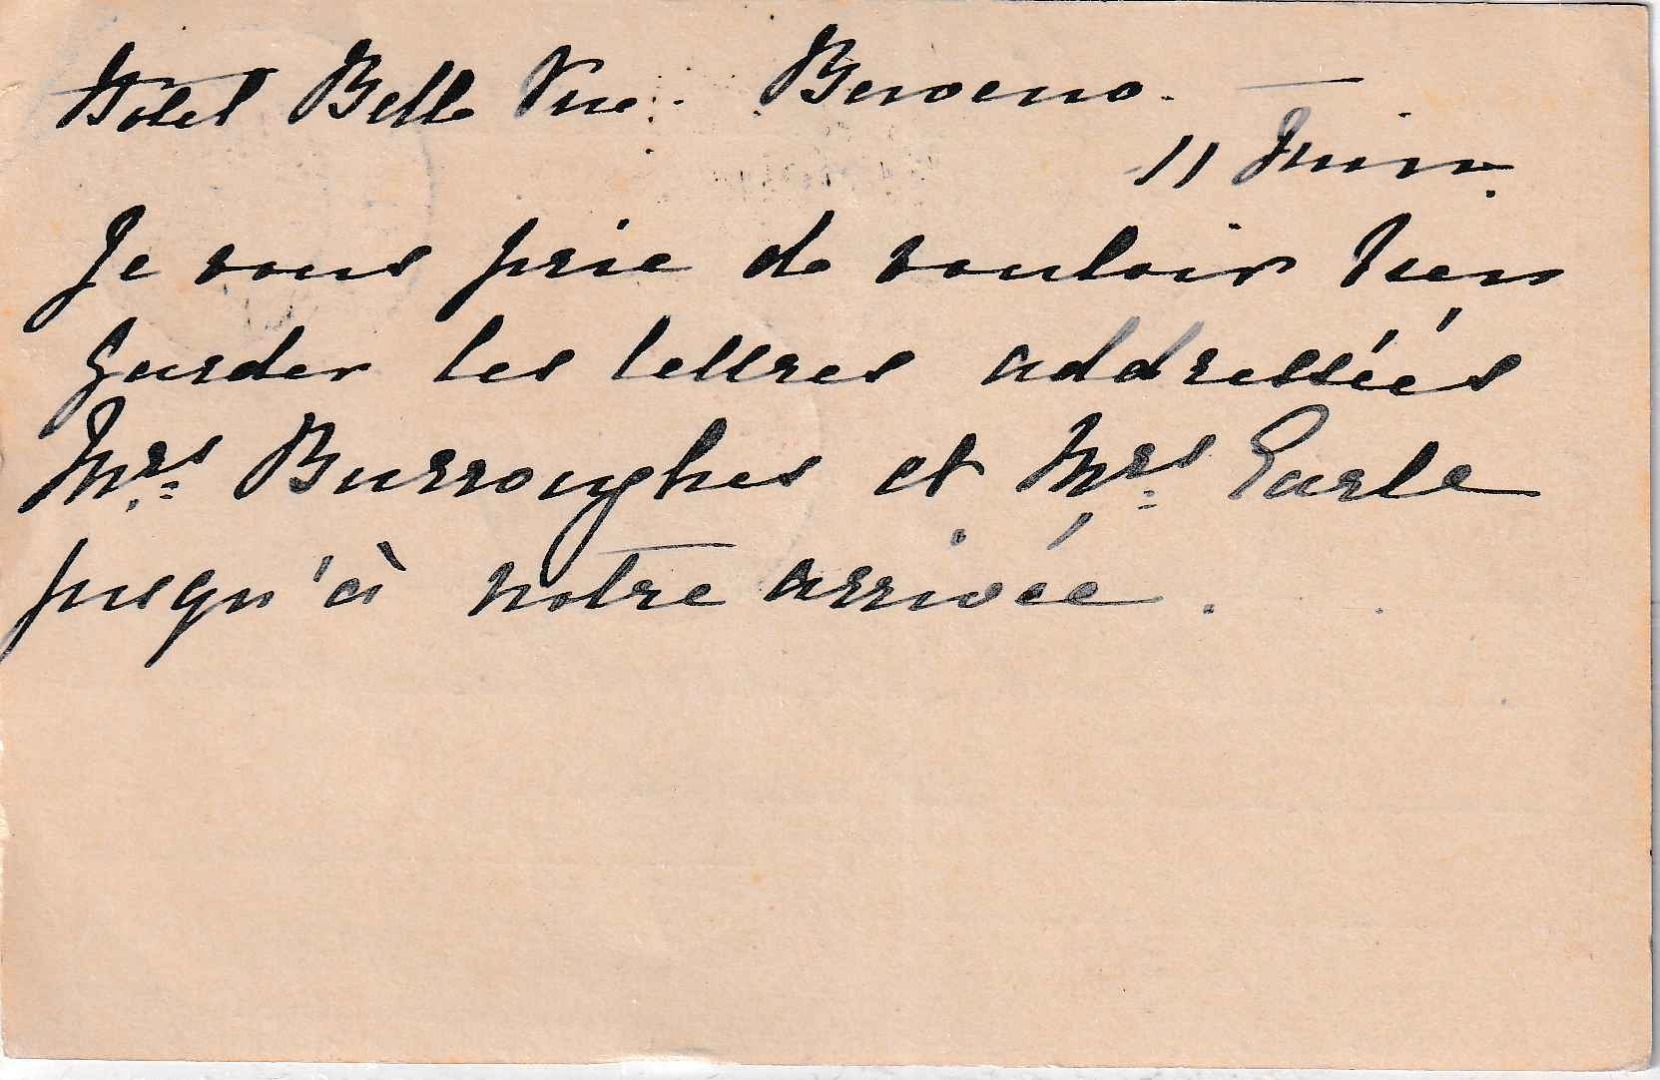 Hotel Belle Vue. Baveno.
11 Juin.
Je vous prie de vouloir bien
garder les lettres addressées
Mrs. Burroughes et Mrs. Earle
jusqu'à notre arrivée.